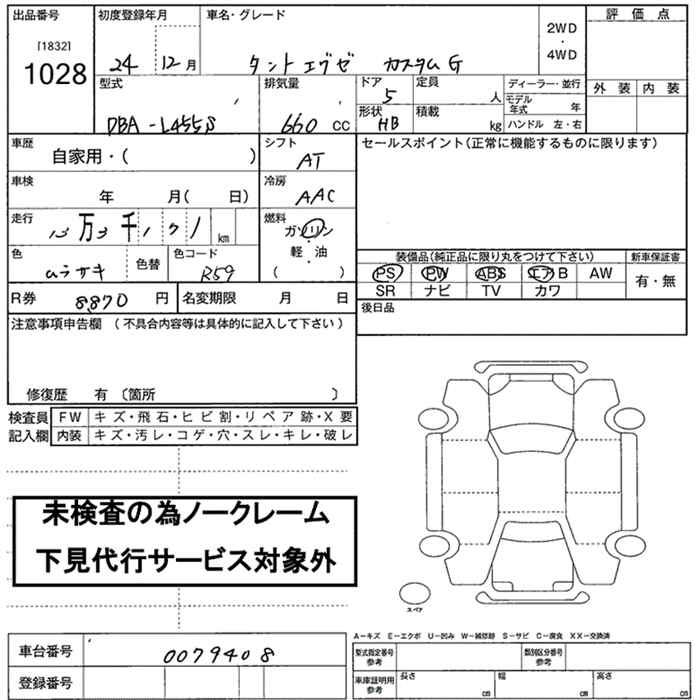 出品番号 初度登録年月 車名・グレード 評価点
[1832]
1028
24 12月 タントエグゼ カスタムG
2WD
・
4WD
外装 内装
型式 排気量 ドア 定員 ディーラー・並行
DBA-L455S 660 cc 5 人 モデル年式 年
形状 積載
HB kg ハンドル 左・右
車歴 シフト セールスポイント(正常に機能するものに限ります)
自家用・( ) AT
車検 冷房
年 月( 日) AAC
走行 燃料
万 千 km ガソリン
・
軽・油
( )
色 色替 色コード
ムラサキ R59
装備品(純正品に限り丸をつけて下さい) 新車保証書
PS PW ABS エアB AW 有・無
SR ナビ TV カワ
R券 8,870 円 名変期限 月 日
後日品
注意事項申告欄 (不具合内容等は具体的に記入して下さい)
修復歴 有 〔箇所 〕
検査員 FW キズ・飛石・ヒビ割・リペア跡・X要
記入欄 内装 キズ・汚レ・コゲ・穴・スレ・キレ・破レ
未検査の為ノークレーム
下見代行サービス対象外
スペア
A-キズ E-エクボ U-凹み W-補修跡 S-サビ C-腐食 XX-交換済
車台番号 0079408
型式指定番号 参考 類別区分番号 参考
登録番号
車庫証明用 参考 長さ cm 幅 cm 高さ cm